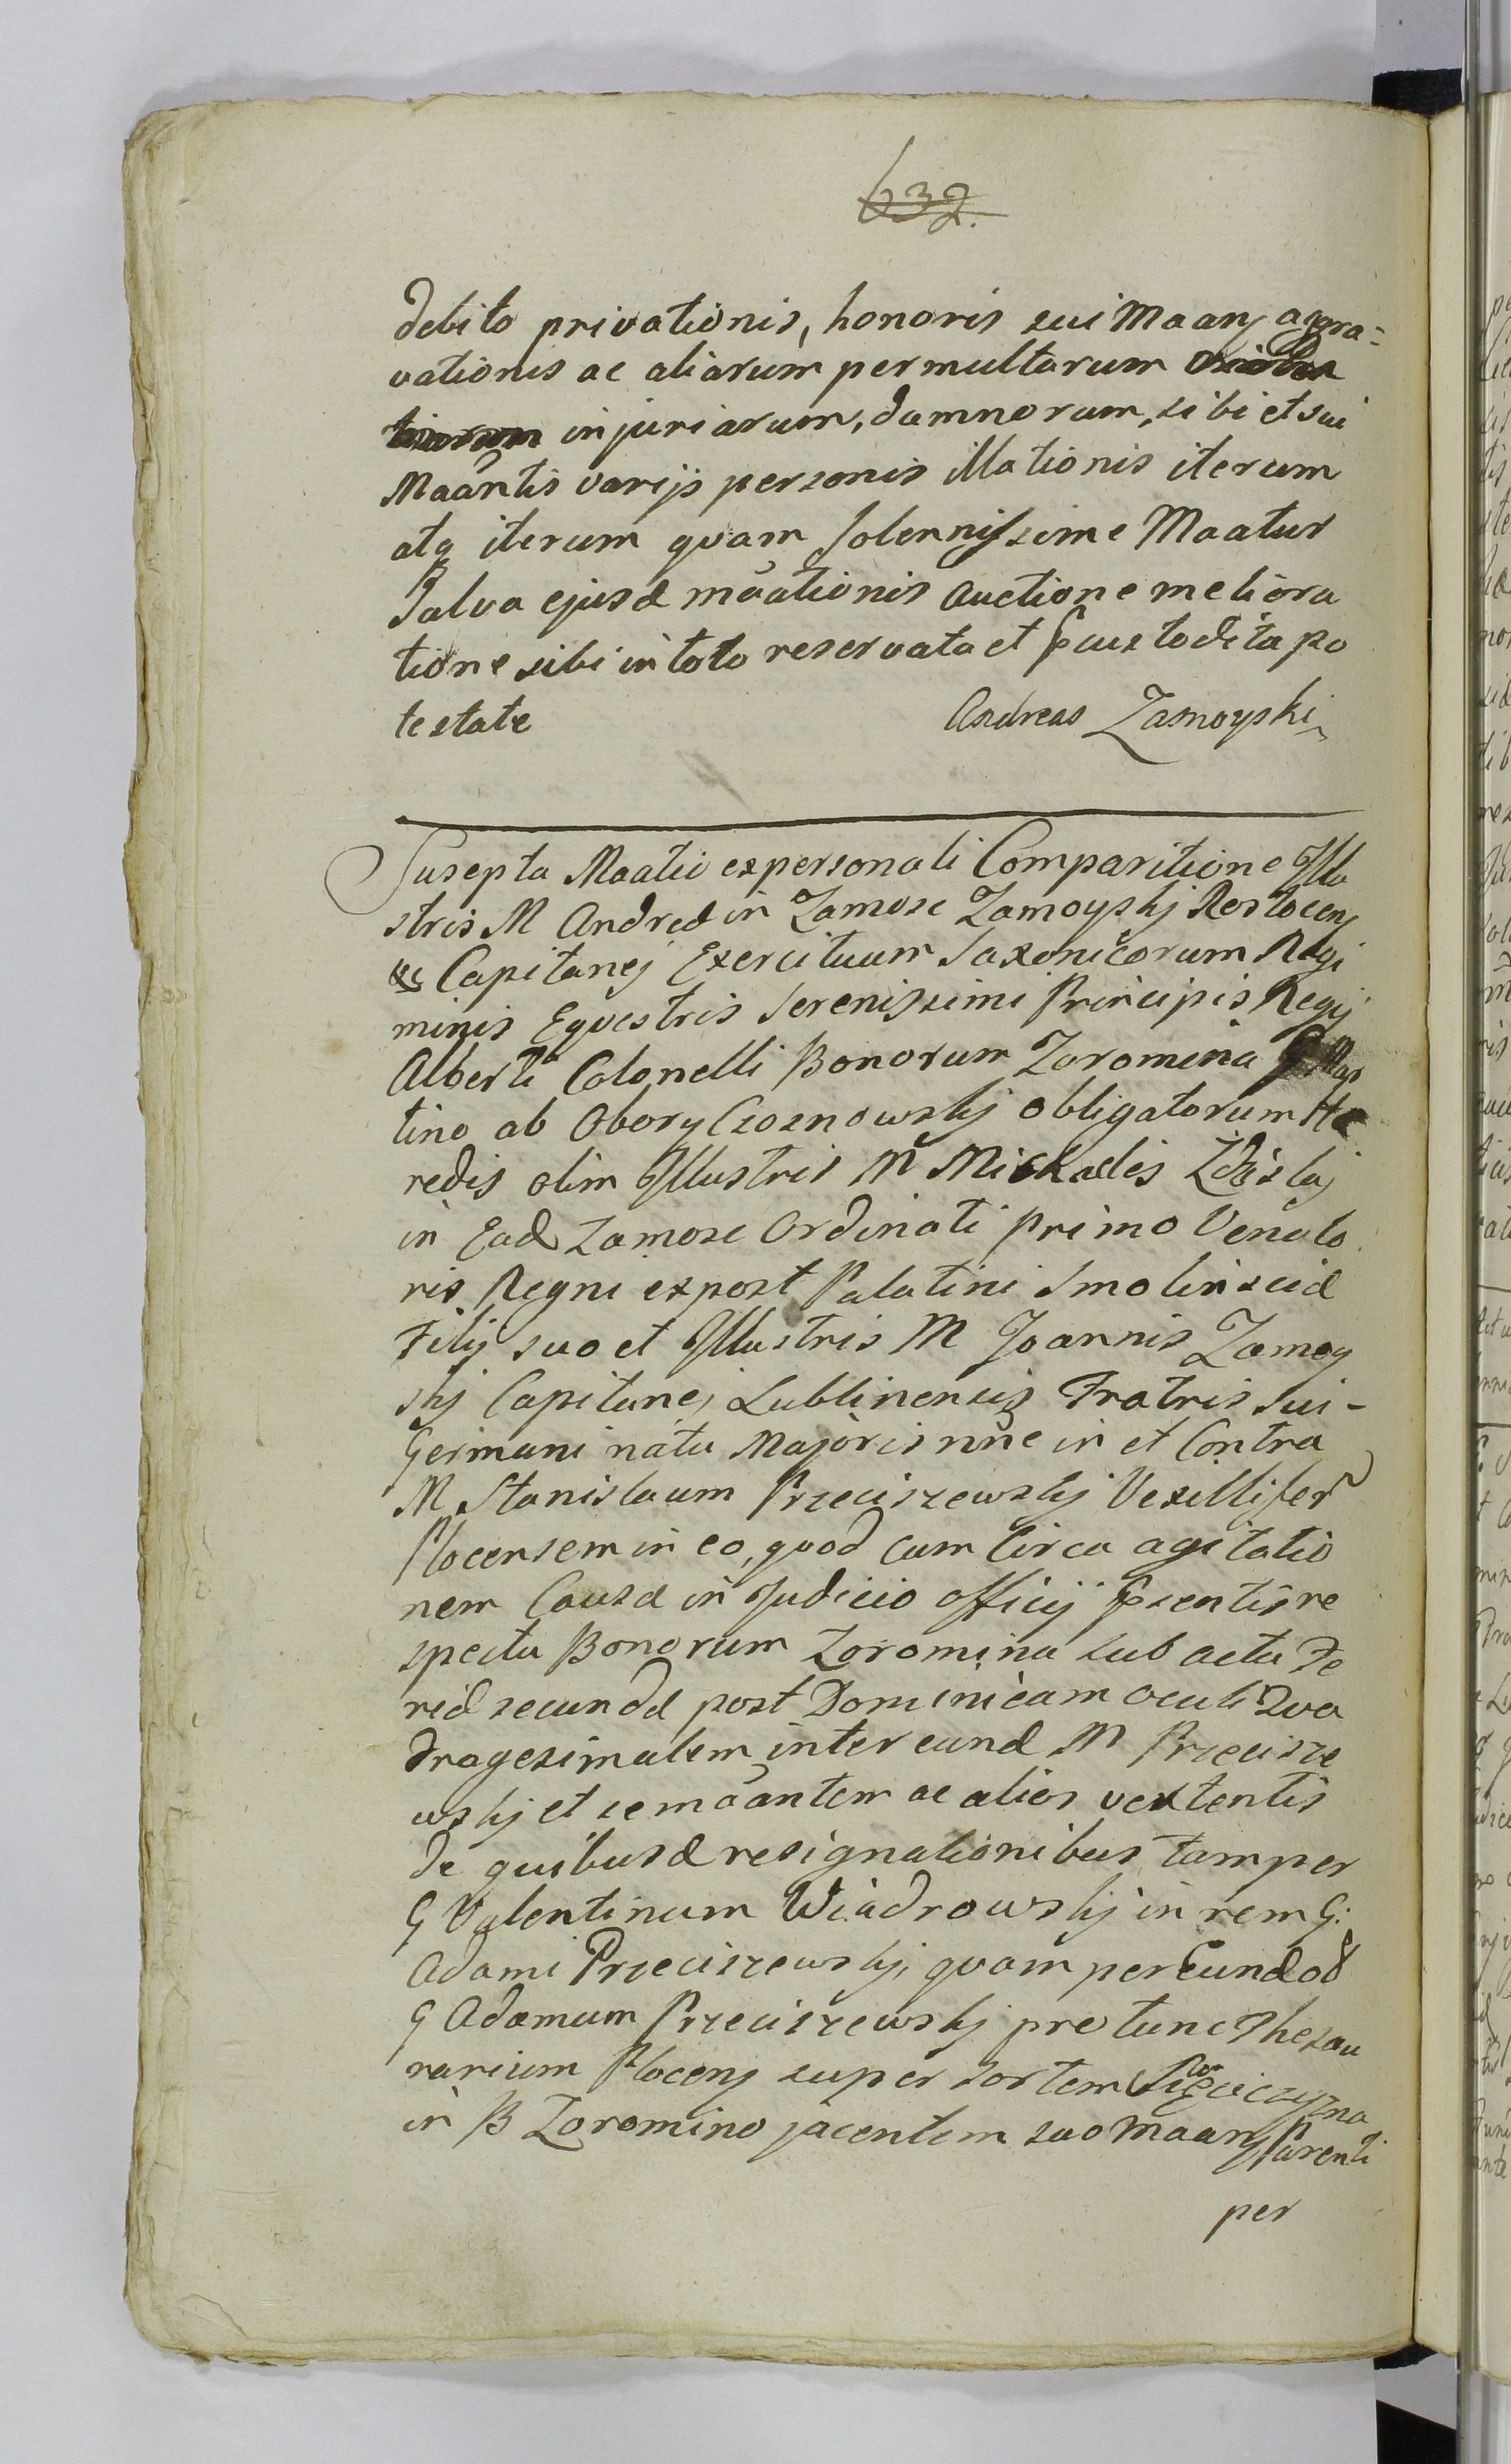 632.
debito privationis, honoris sui Maanj aggra=
vationis ac aliarum permultarum
injuriarum, damnorum, sibi et sui
Maantis varijs personis illationis iterum
atq iterum quam solennissime Maatur
Salva ejusd maationis auctione meliora
tione sibi in toto reservata et custodita po
testate Andreas Zamoyski
Suscepta Maatio ex personali Comparitione Illu
stris M Andreæ in Zamosc Zamoyskj Rostocenj
Capitanej Exercituum Saxonicorum Regi
minis Equestris Serenissimi Principis Regij
Alberti Colonelli Bonorum Zoromina G Mar
tino ab Obory Czosnowskj obligatorum Hæ
redis olim Illustris M Michaelis Zdzislaj
in Ead Zamosc Ordinati primo Venato
ris Regni expost Palatini Smolinsciæ
Filij suo et Illustris M Joannis Zamoy
skj Capitanej Lublinensis Fratris sui-
Germani natu Majoris nne in et Contra
M Stanislaum Przeciszewskj Vexillifer
Plocensem in eo, quod cum circa agitatio
nem Causæ in Judicio officij pscentis re
spectu Bonorum Zoromina sub actu Fe
riæ secundæ post Dominicam oculi Qua
dragesimalem inter eund M Przecisze
wskj et se maantem ac alios vertentis
de quibusd resignationibus tam per
G Valentinum Wiadrowskj in rem G:
Adami Przeciszewskj, quam per Eund ad
G Adamum Przeciszewskj pro tunc Thesau
rarium Plocenj super sortem
in B Zoromino jacentem suo maanj Parenti
per